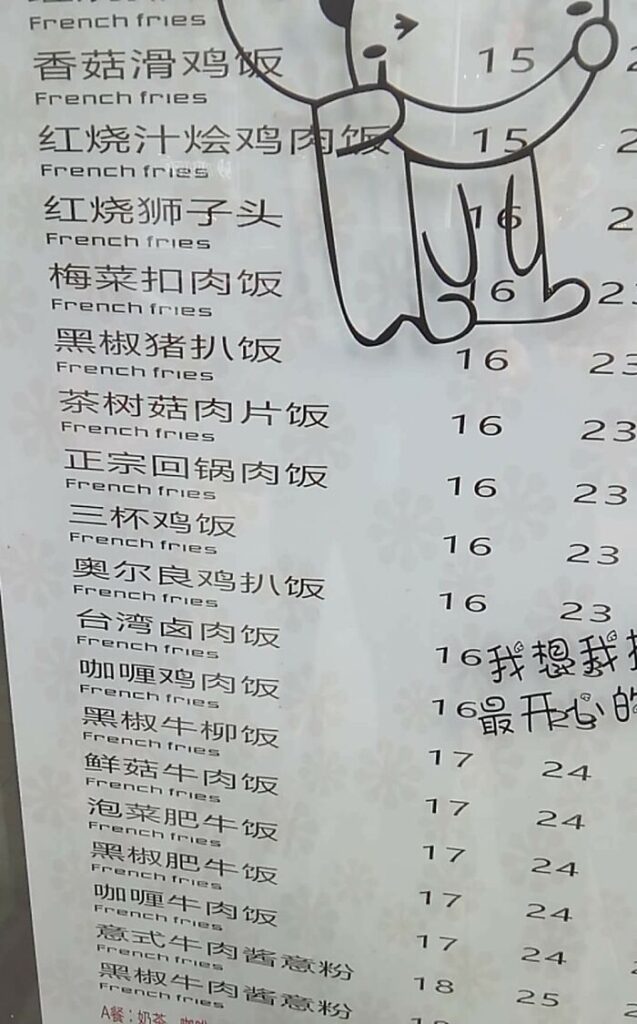 French fries
香菇滑鸡饭 15
French fries
红烧汁烩鸡肉饭 15
French fries
红烧狮子头 16
French fries
梅菜扣肉饭 16
French fries
黑椒猪扒饭 16 23
French fries
茶树菇肉片饭 16 23
French fries
正宗回锅肉饭 16 23
French fries
三杯鸡饭 16 23
French fries
奥尔良鸡扒饭 16 23
French fries
台湾卤肉饭 16
French fries
我想我
咖喱鸡肉饭 16
French fries
最开心的
黑椒牛柳饭 17 24
French fries
鲜菇牛肉饭 17 24
French fries
泡菜肥牛饭 17 24
French fries
黑椒肥牛饭 17 24
French fries
咖喱牛肉饭 17 24
French fries
意式牛肉酱意粉 18 25
French fries
黑椒牛肉酱意粉
French fries
A餐：奶茶